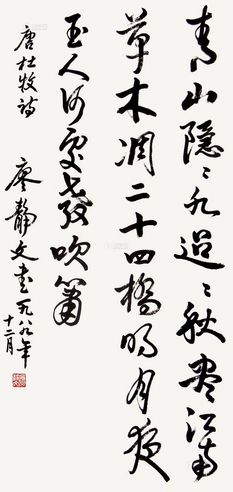 青山隐〻水迢〻秋尽江南
草木凋二十四橋明月夜
玉人何处教吹簫
唐杜牧诗
廖静文书一九八九年
十二月